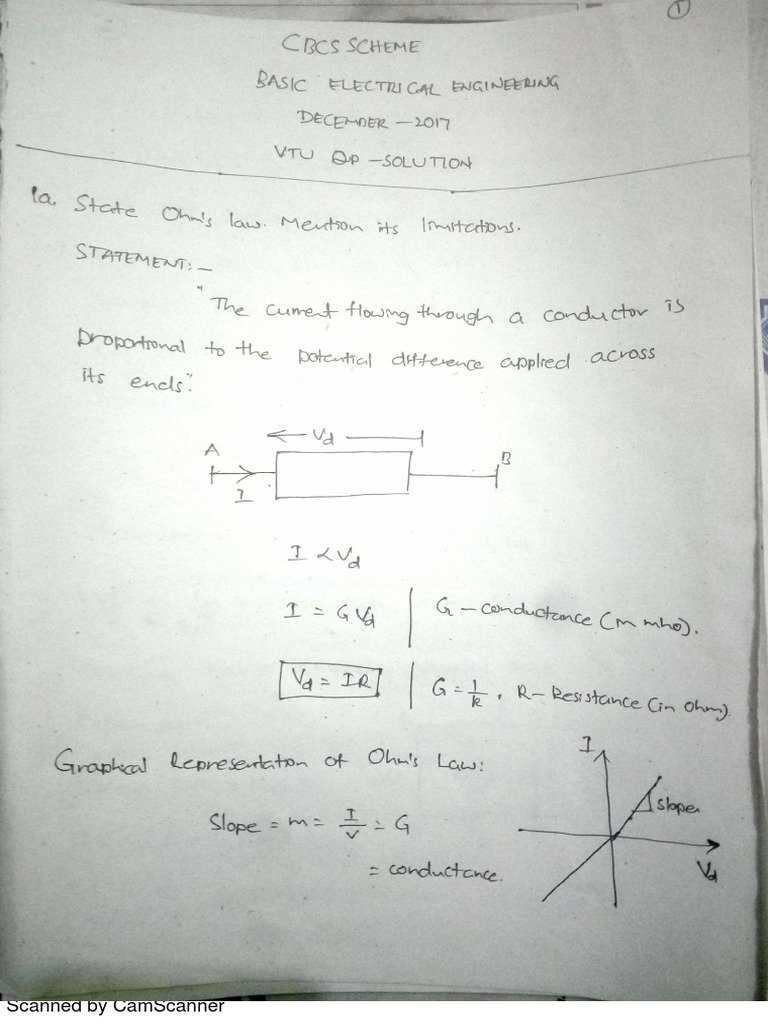 1
CBCS SCHEME
BASIC ELECTRICAL ENGINEERING
DECEMBER - 2017
VTU QP - SOLUTION
1a. State Ohm's law. Mention its limitations.
STATEMENT:-
"The current flowing through a conductor is
proportional to the potential difference applied across
its ends".
Vd
A
B
I
I ∝ Vd
I = G Vd | G - conductance (in mho).
Vd = IR | G = 1/R, R - Resistance (in ohm).
Graphical Representation of Ohm's Law:
I
Slope
Slope = m = I/V = G
Vd
= conductance.
Scanned by CamScanner